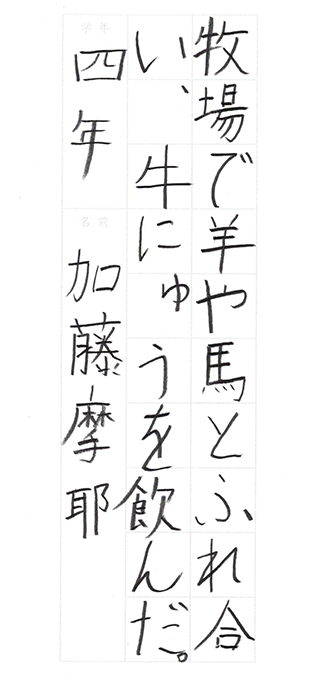 牧場で羊や馬とふれ合
い、牛にゅうを飲んだ。
学年
四年
名前
加藤摩耶